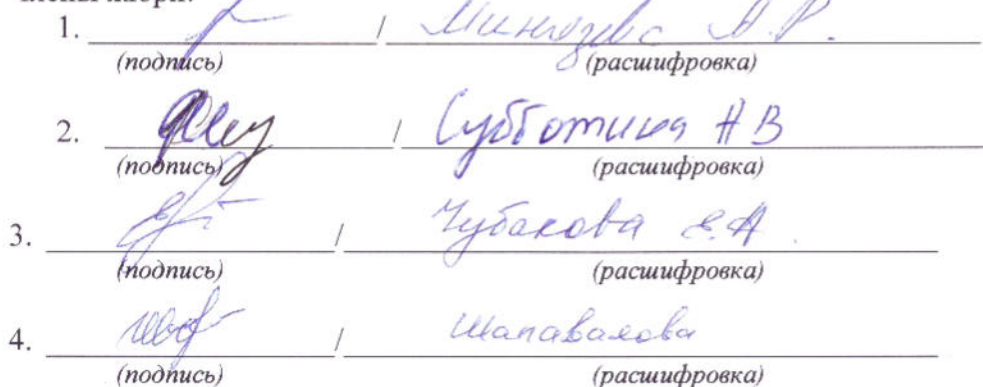 члены жюри:
1. / А.Р.
(подпись) (расшифровка)
2. / Субботина А В
(подпись) (расшифровка)
3. / Чубакова Е.А.
(подпись) (расшифровка)
4. / Шапавалова
(подпись) (расшифровка)